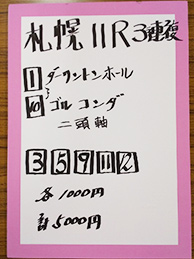 札幌11R3連複
1 ダーリントンホール
10 ゴルコンダ
二頭軸
3 5 9 11 12
各1000円
計5000円